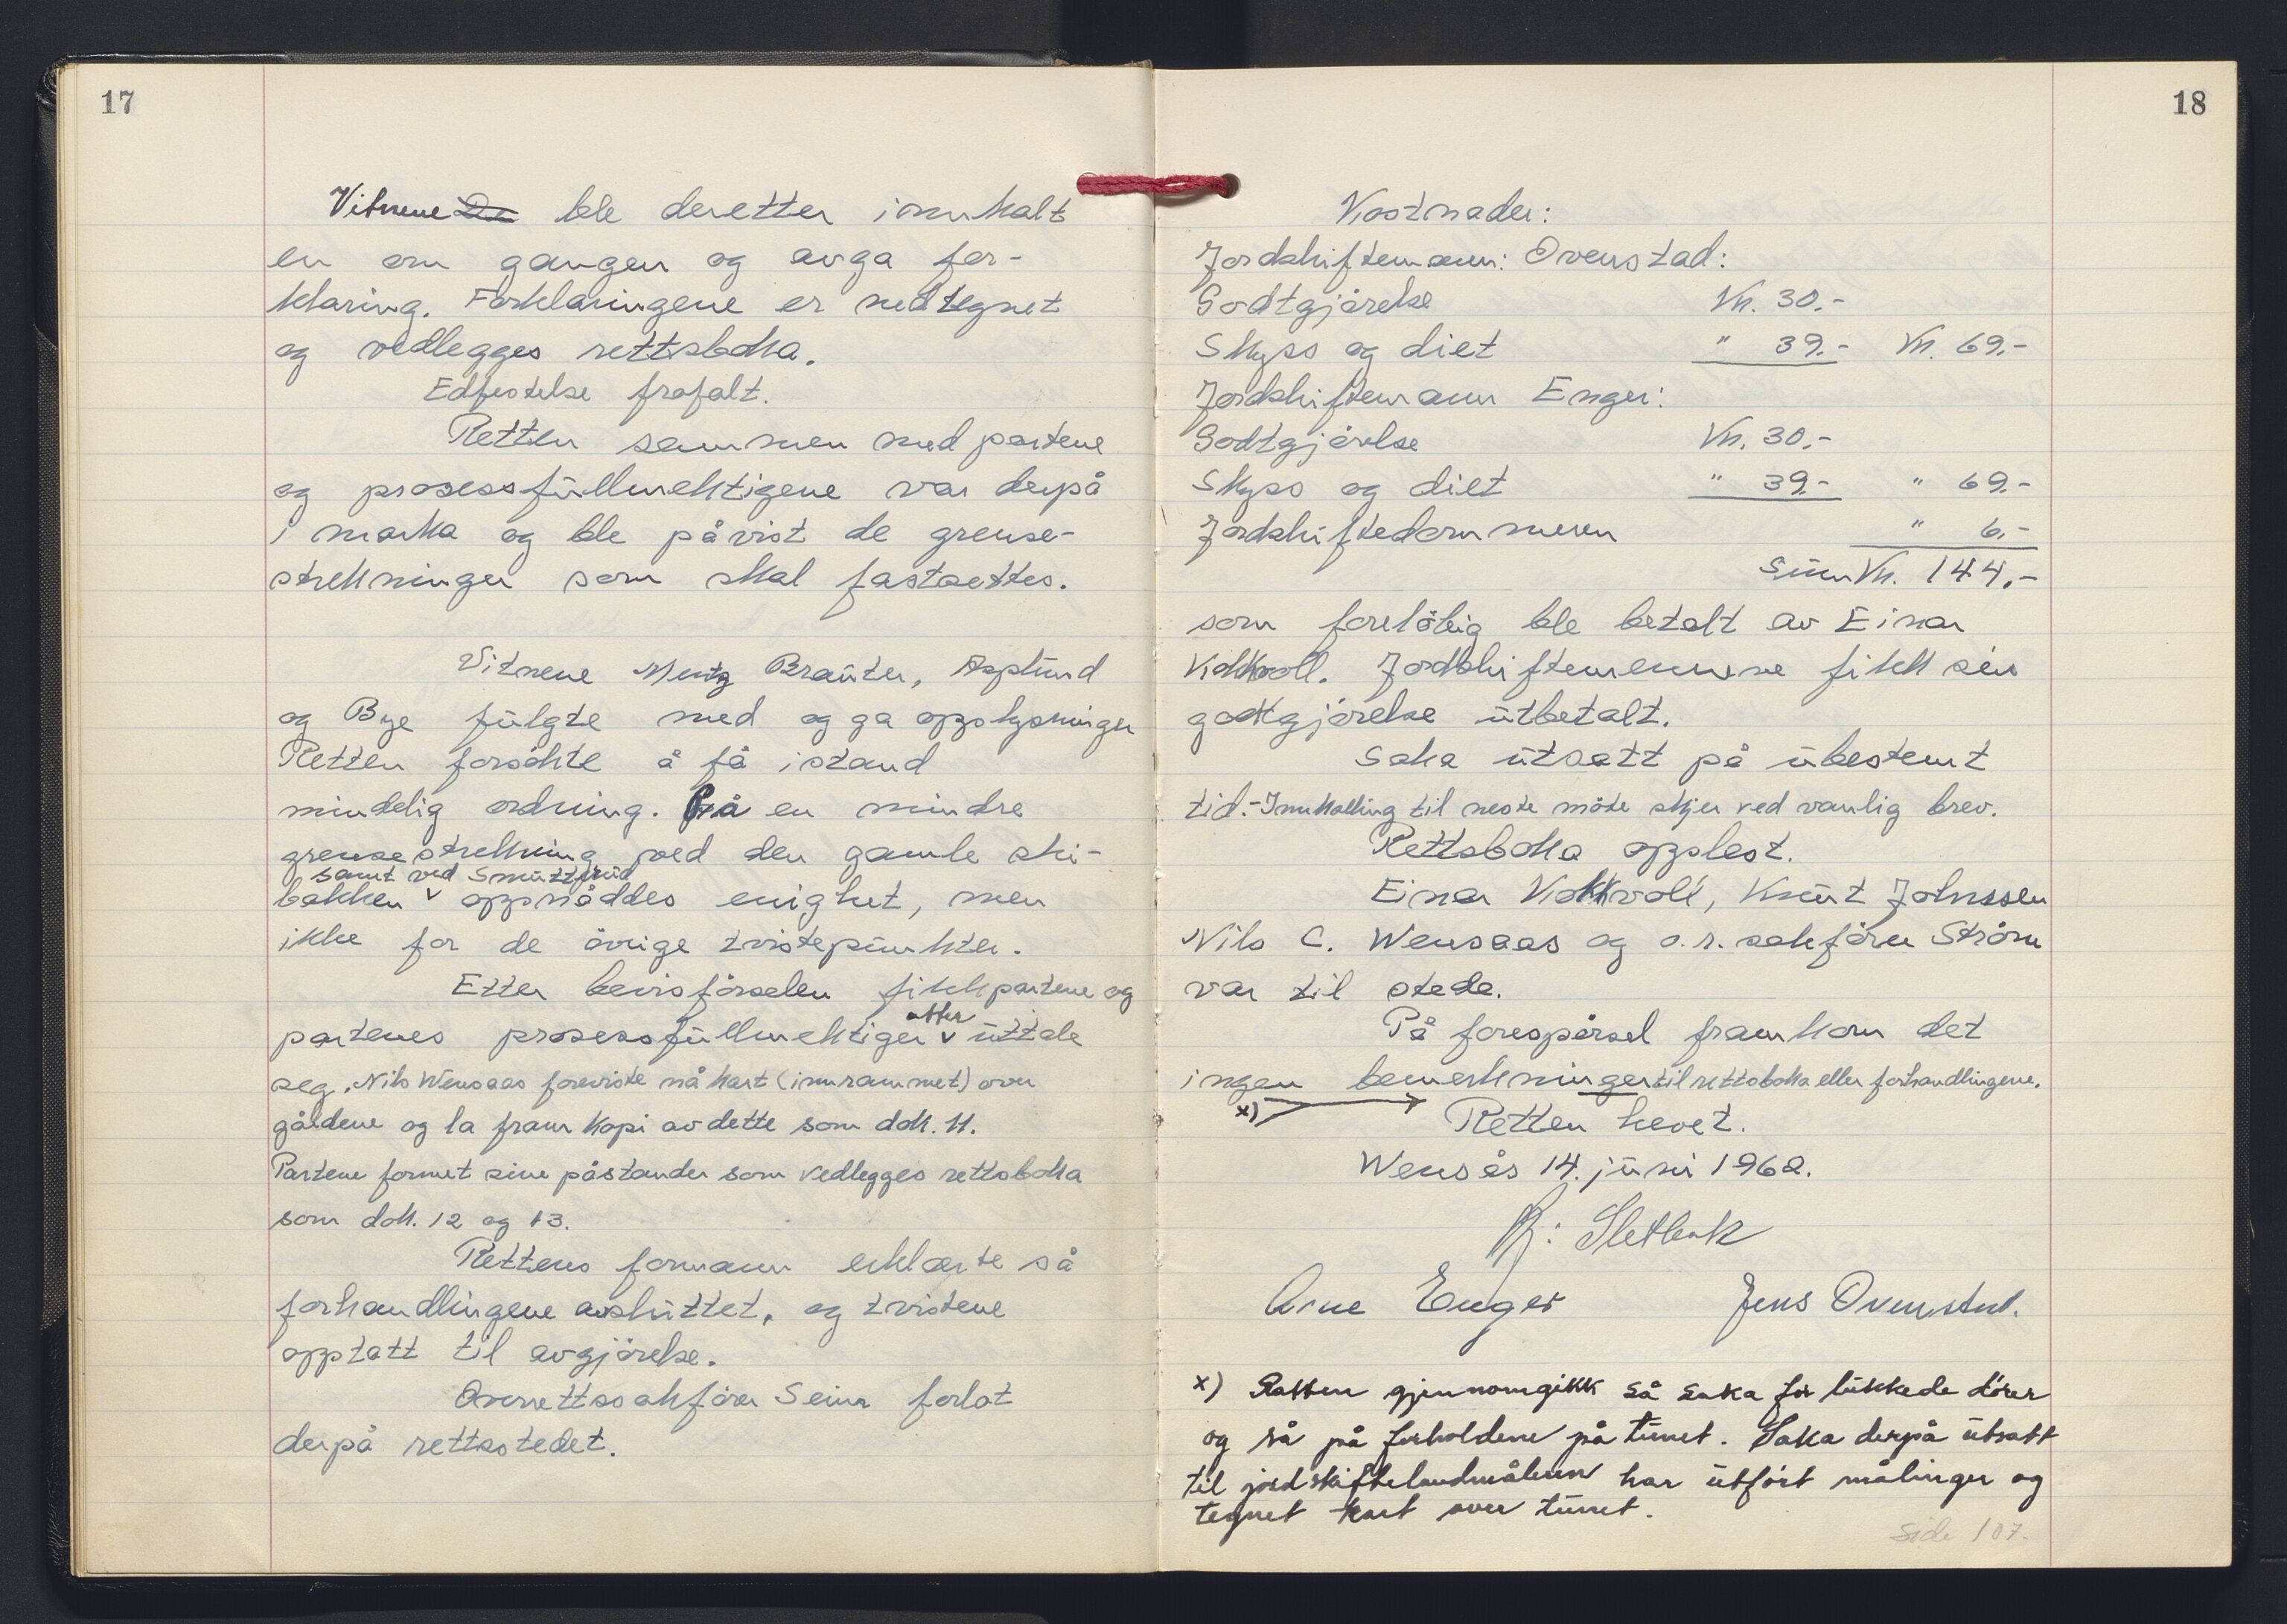 17
Vitnene De ble deretter innkalt
en om gangen og avga for-
klaring. Forklaringene er nedtegnet
og vedlegges rettsboka.
Edfestelse frafalt.
Retten sammen med partene
og prosessfullmektigene var derpå
i marka og ble påvist de grense-
strekninger som skal fastsettes.
Vitnene Mentz Brauter, Asplund
og Bye fulgte med og ga opplysninger
Retten forsökte å få istand
mindelig ordning. På en mindre
grensestrekning ved den gamle ski-
samt ved Smuttfrud
bakken v oppnåddes enighet, men
ikke for de övrige tvistepunkter.
Etter bevisförselen fikk partene og
partenes prosessfullmektiger v etter uttale
seg. Nils Wensaas foreviste nå kart (innrammet) over
gårdene og la fram kopi av dette som dok. 11.
Partene formet sine påstander som vedlegges rettsboka
som dok. 12 og 13.
Rettens formann erklærte så
forhandlingene avsluttet, og tvistene
opptatt til avgjörelse.
Overrettssakförer Seim forlot
derpå rettsstedet.
18
Kostnader:
Jordskiftemann: Ovenstad:
Godtgjörelse Kr. 30.-
Skyss og diet " 39.- Kr. 69.-
Jordskiftemann Enger:
Godtgjörelse Kr. 30.-
Skyss og diet " 39.- " 69.-
Jordskiftedommeren " 6.-
Sum Kr. 144.-
som forelöbig ble betalt av Einar
Kokkvoll. Jordskiftemennene fikk sin
godtgjörelse utbetalt.
Saka utsatt på ubestemt
tid. - Innkalling til neste möte skjer ved vanlig brev.
Rettsboka opplest.
Einar Kokkvoll, Knut Johnssen
Nils C. Wensaas og o.r. sakförer Ström
var til stede.
På forespörsel framkom det
ingen bemerkninger til rettsboka eller forhandlingene.
x)
Retten hevet.
Wensås 14. juni 1962.
Arne Enger Jens Ovenstad.
x) Retten gjennomgikk så saka for lukkede dörer
og så på forholdene på tunet. Saka derpå utsatt
til jordskiftelandmåleren har utfört målinger og
tegnet kart over tunet.
Side 107.